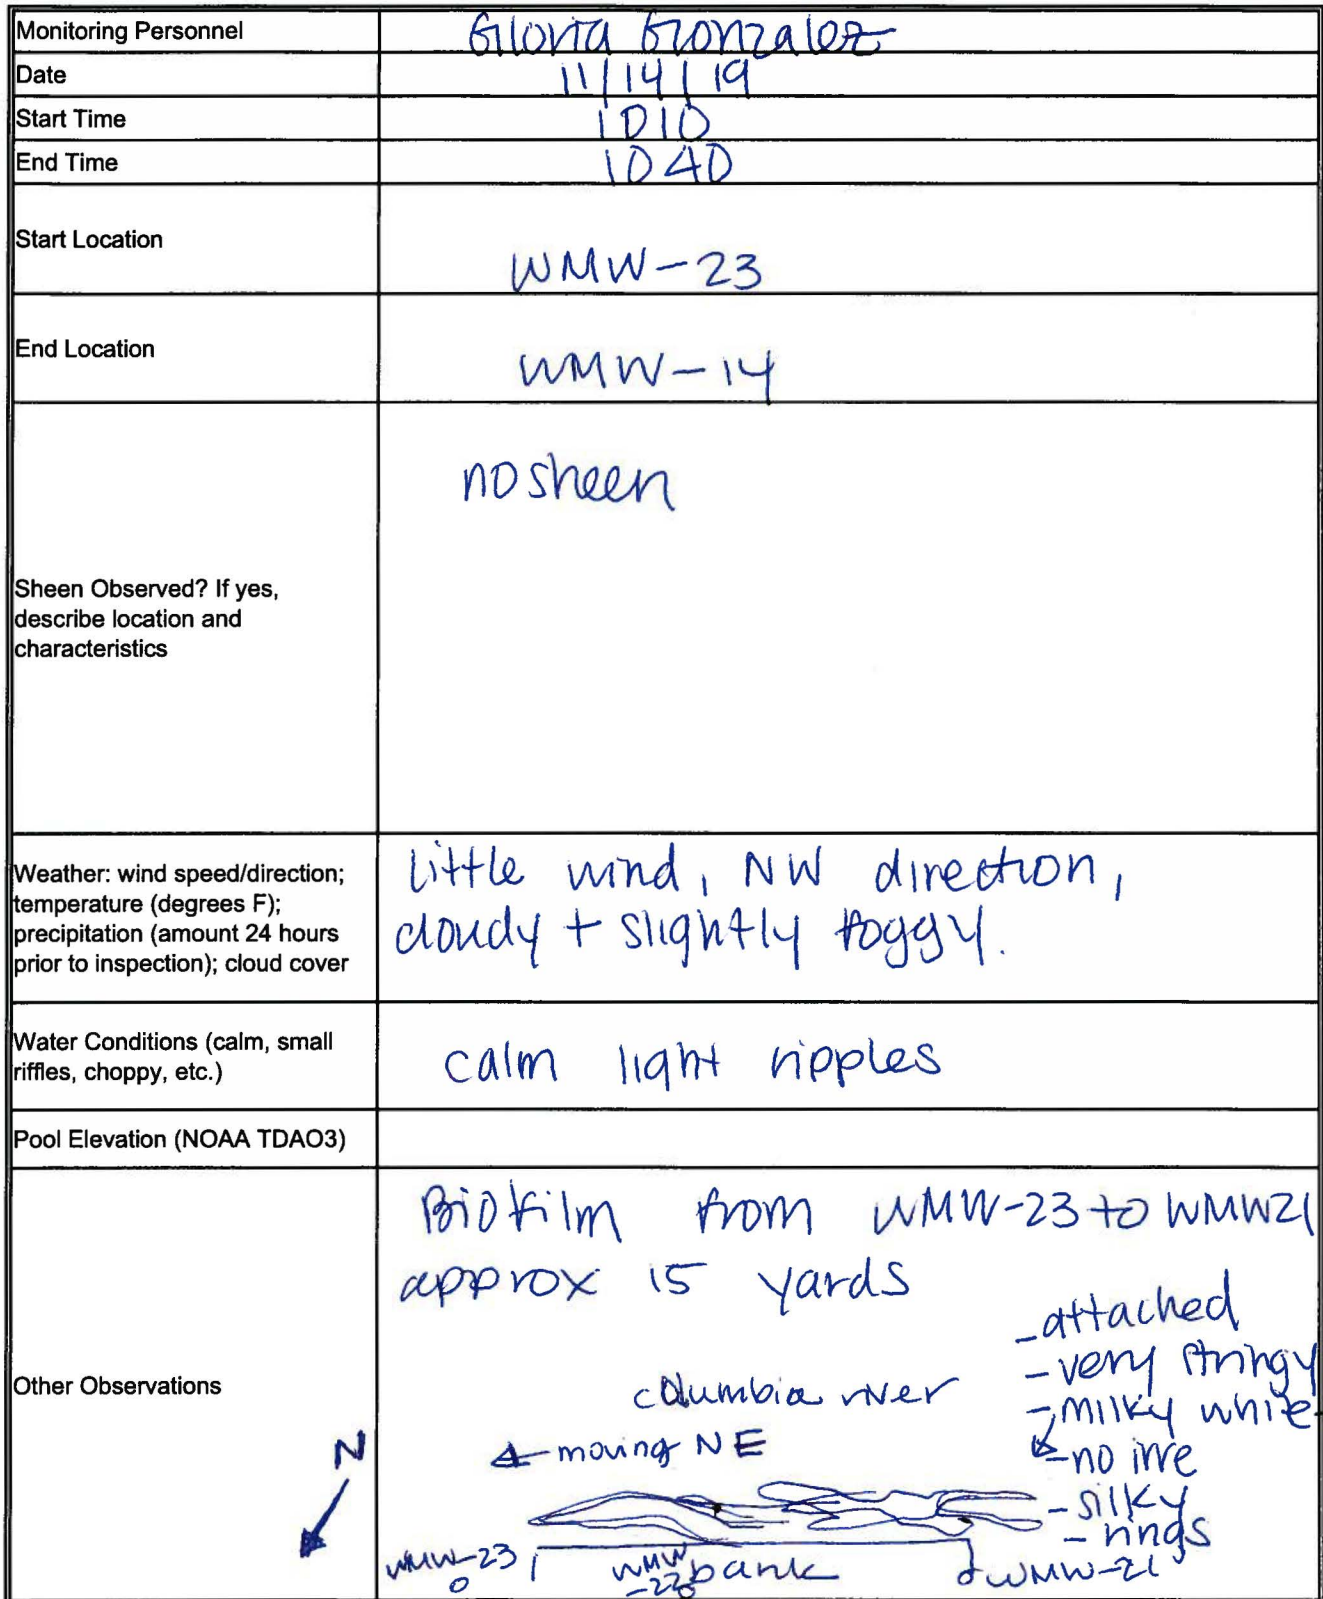 Monitoring Personnel
Gloria Gonzalez
Date
11/14/19
Start Time
1010
End Time
1040
Start Location
WMW-23
End Location
WMW-14
Sheen Observed? If yes,
describe location and
characteristics
no sheen
Weather: wind speed/direction;
temperature (degrees F);
precipitation (amount 24 hours
prior to inspection); cloud cover
little wind, NW direction,
cloudy + slightly foggy.
Water Conditions (calm, small
riffles, choppy, etc.)
calm light ripples
Pool Elevation (NOAA TDAO3)
Other Observations
Biofilm from WMW-23 to WMW21
approx 15 yards
-attached
-very stringy
-milky white
-no
-silky
-rings
columbia river
moving NE
N
WMW-23
WMW
-22
bank
WMW-21